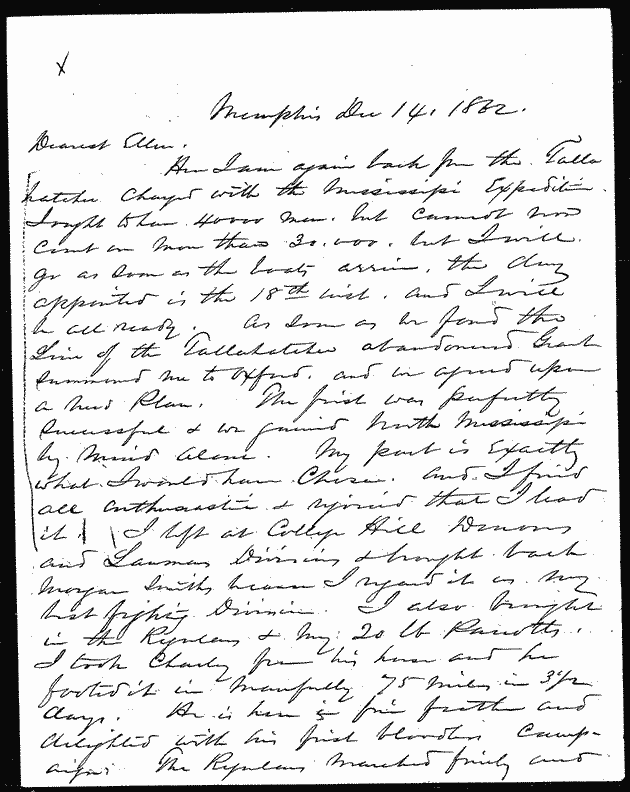 X
Memphis Dec 14, 1862.
Dearest Ellen.
Here I am again back from the Talla
hatchie charged with the Mississippi Expedition.
I ought to have 40000 men. but cannot now
count on more than 30.000. but I will
go as soon as the boats arrive. the day
appointed is the 18th inst. and I will
be all ready. As soon as we found the
Line of the Tallahatchie abandoned Grant
summoned me to Oxford. and we agreed upon
a new Plan. The first was perfectly
successful & we gained North Mississippi
by mind alone. My part is Exactly
what I would have chosen. and I find
all enthusiastic & rejoiced that I lead
it. I left at College Hill Denvers
and Laumans Divisions & brought back
Morgan Smiths because I regard it as my
best fighting Division. I also brought
in the Regulars & my 20 lb Parrotts.
I took Charley from his horse and he
footed it in manfully 75 miles in 3 1/2
days. He is here in fine feather and
delighted with his first bloodless camp-
aign. The Regulars marched finely and